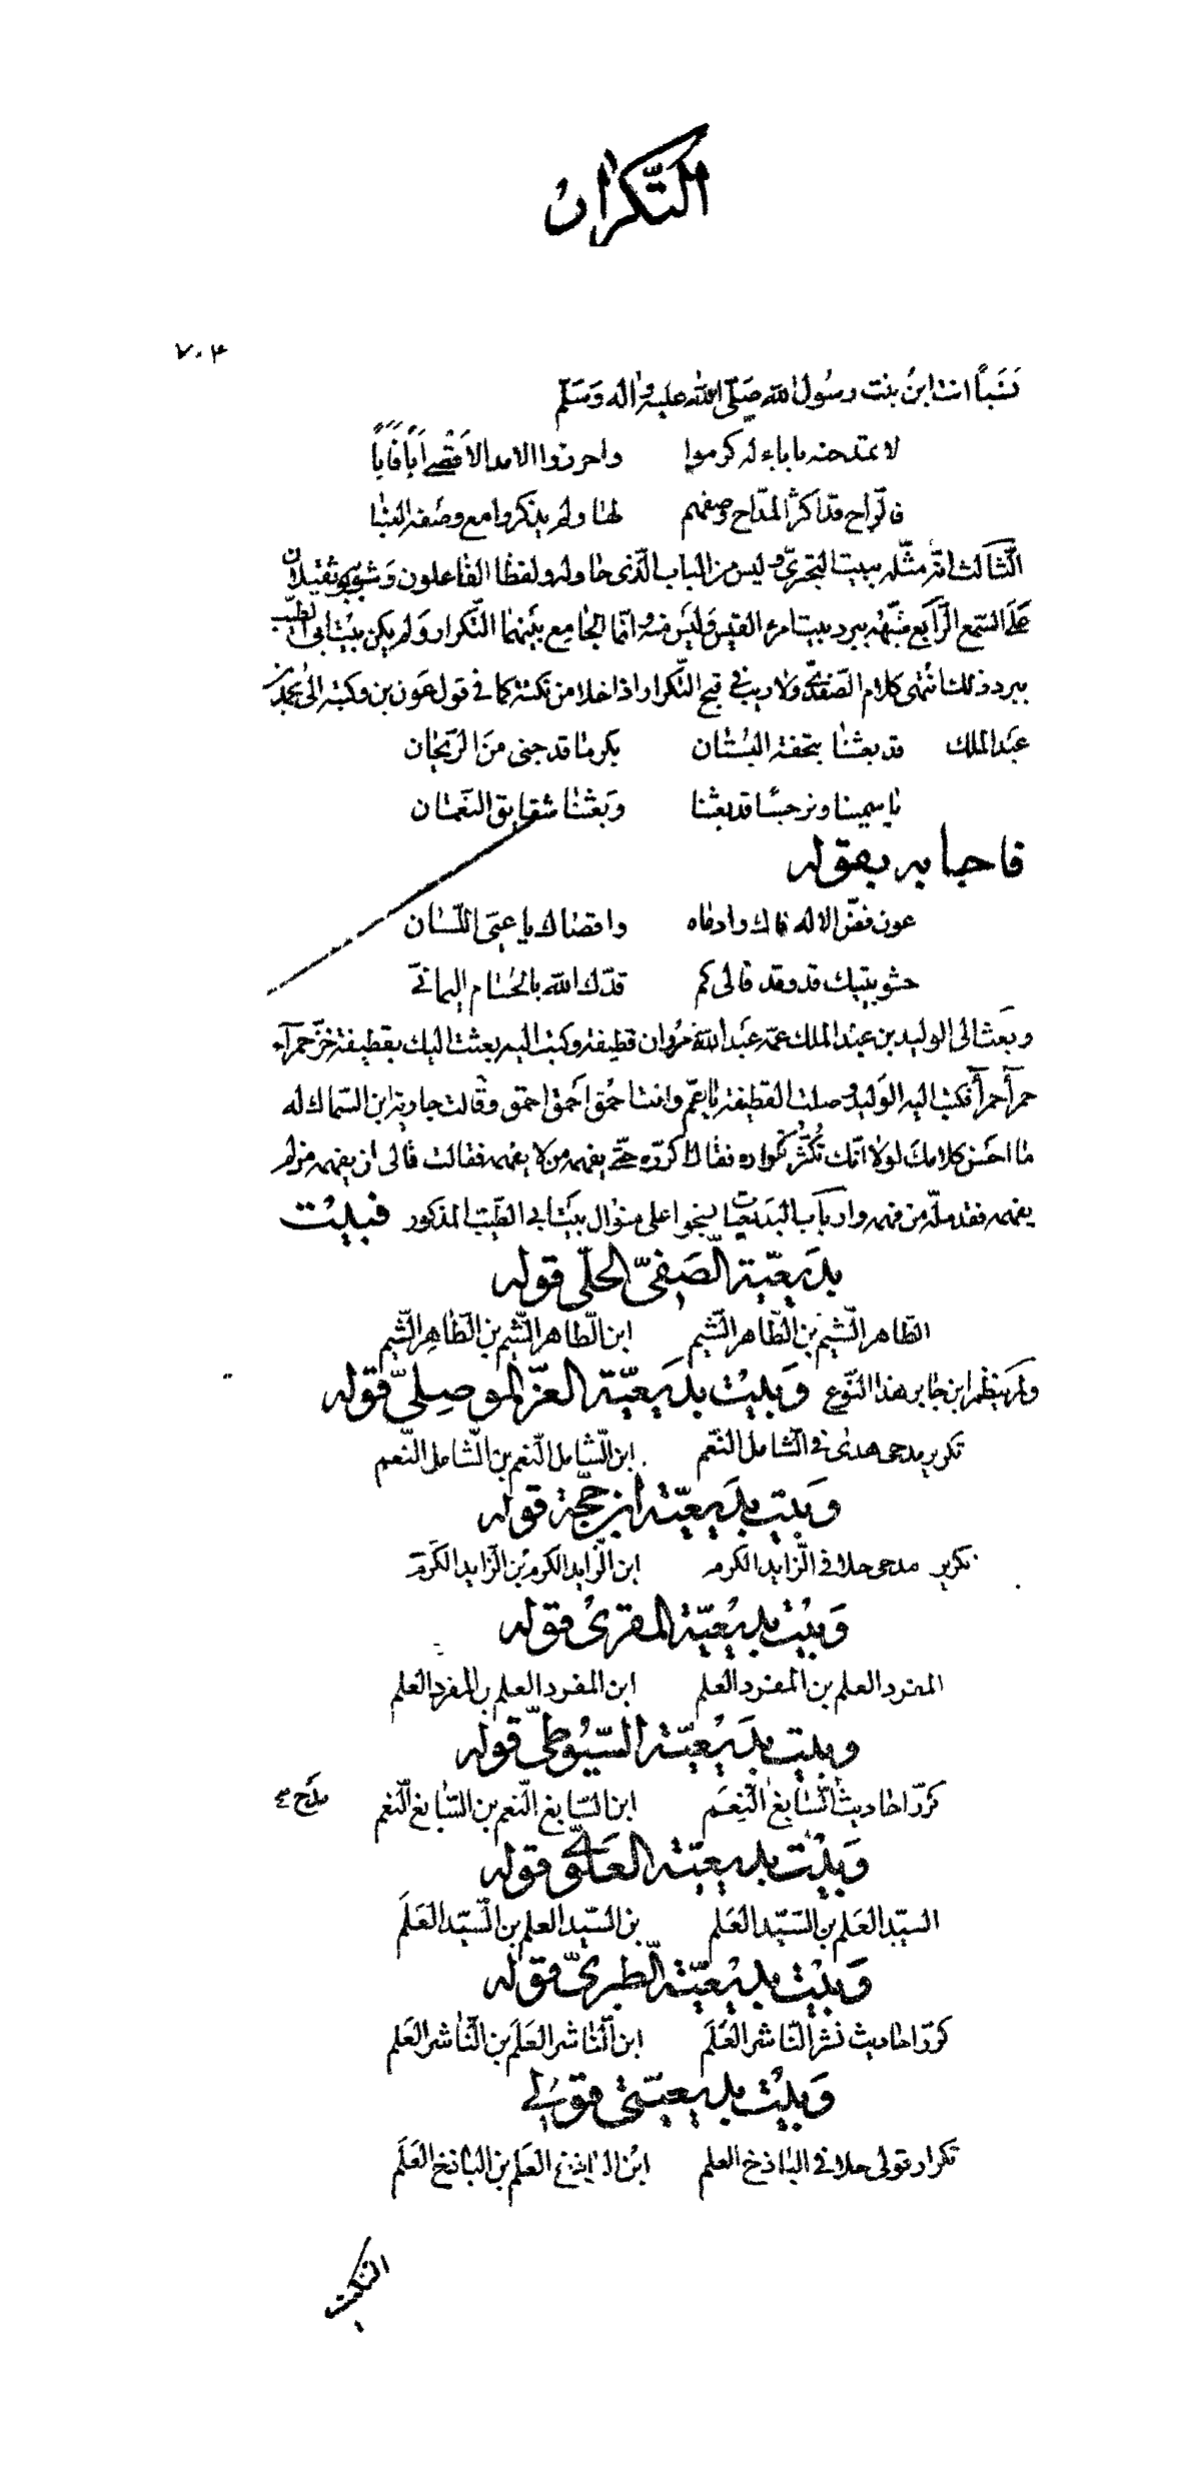 التكرار
٧٠٤
نسباً انت ابن بنت رسول الله صلّى الله عليه واله وسلّم
لا تمتدحنه باباء له كرموا واحرزوا الامد الاقصى اباً فاباً
فالراح قد اكثر المدّاح وصفهم لها ولم يذكروا مع وصفه العنبا
الثالث انّه مثّله ببيت البحتريّ وليس من الباب الّذى حاوله ولفظا الفاعلون وشؤبوب ثقيلان
على السمع الرّابع شبّهه ببرد بيت امرء القيس وليس منه وانّما الجامع بينهما التّكرار ولم يكن بيت ابى الطيّب
ببرد ذلك انتهى كلام الصّفدىّ ولا ريب في قبح التّكرار اذا خلا من نكتة كما في قول عون بن وكتبه الى محمد بن
عبد الملك قد بعثنا بتحفة البستان بكر ما قد جنى من الرّيحان
ياسمينا ونرجسًا قد بعثنا وبعثنا شقايق النّعمان
فاجابه بقوله
عون فضّ الاله فاك وادماه واقصاك يا عيىّ اللّسان
حشو بيتيك قد وقد فالى كم قدّك الله بالحسام اليمانىّ
وبعث الى الوليد بن عبد الملك عمّه عبد الله مروان قطيفة وكتب اليه بعثت اليك بقطيفة خزّ حمرآء
حمرآ حمرآ فكتب اليه الوليد وصلت القطيفة يا عمّ وانت احمق احمق احمق وقالت جارية ابن السّماك له
ما احسن كلامك لولا انّك تكثر تكراره فقال اكرّره حتّى يفهمه من لا يفهمه فقالت فالى ان يفهمه من لم
يفهمه فقد ملّه من فهمه وارباب البديعيّات نسجوا على منوال بيت ابى الطّيّب المذكور فبيت
بديعيّة الصّفىّ الحلّى قوله
الطّاهر الشّيم بن الطّاهر الشّيم ابن الطّاهر الشّيم بن الطّاهر الشّيم
ولم ينظم ابن جابر هذا النّوع وبيت بديعيّة العزّ الموصلىّ قوله
تكرير مدحى هدى في الشّامل النّعم ابن الشّامل النّعم بن الشّامل النّعم
وبيت بديعيّة ابن حجّة قوله
تكرير مدحى حلا في الزّايد الكرم ابن الزّايد الكرم بن الزّايد الكرم
وبيت بديعيّة المقرى قوله
المفرد العلم بن المفرد العلم ابن المفرد العلم بن المفرد العلم
وبيت بديعيّة السّيوطىّ قوله
كرّر احاديث السّابغ النّعم ابن السّابغ النّعم بن السّابغ النّعم مدح
وبيت بديعيّة العلوىّ قوله
السيّد العلم بن السيّد العلم بن السيّد العلم بن السيّد العلم
وبيت بديعيّة الطّبرىّ قوله
كرّر احاديث نشر النّاشر العلم ابن النّاشر العلم بن النّاشر العلم
وبيت بديعيّتى قولى
تكرار قولى حلا في الباذخ العلم ابن الباذخ العلم بن الباذخ العلم